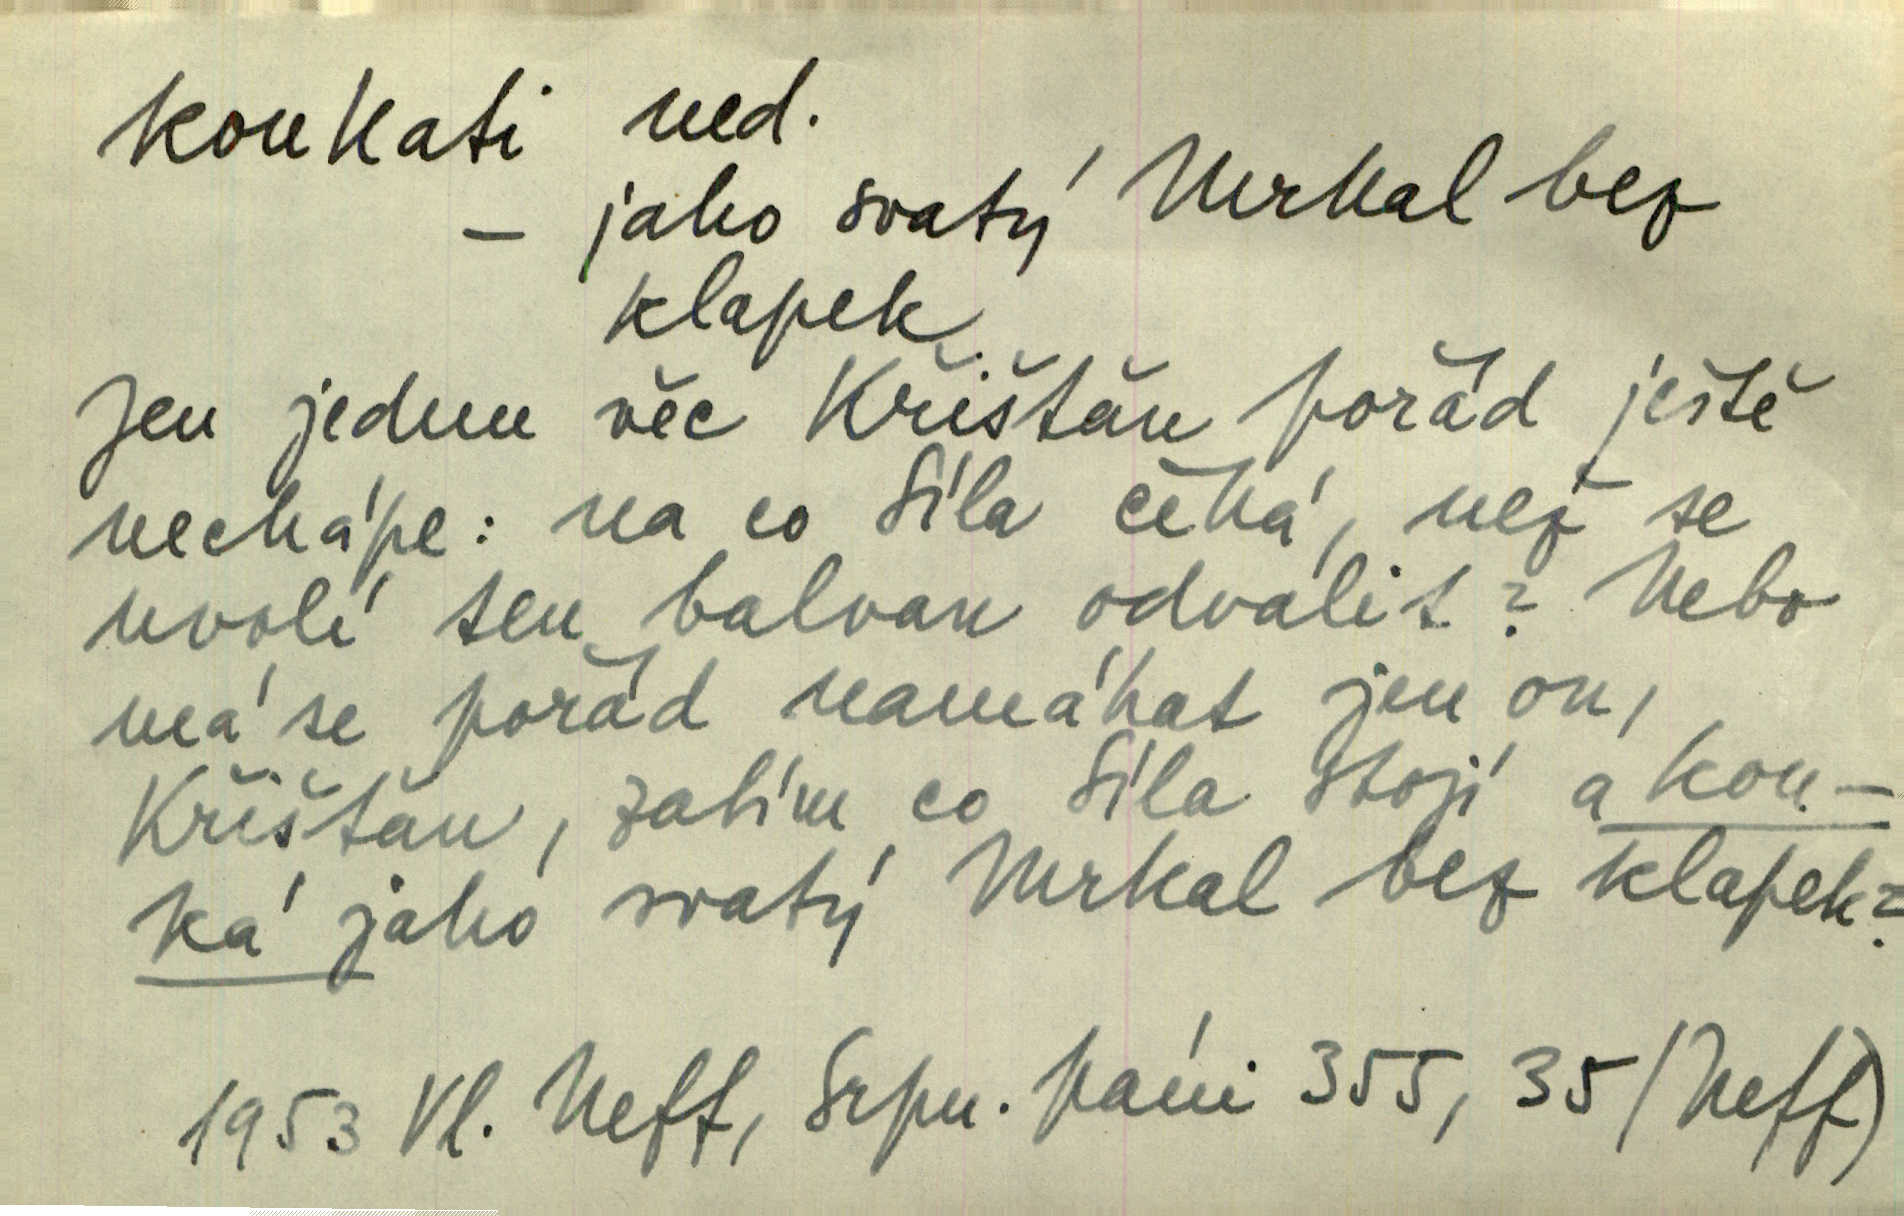 koukati ned.
– jako svatý Mrkal bez
klapek.
Jen jednu věc Křišťan pořád ještě
nechápe: na co Síla čeká, než se
uvolí ten balvan odvalit? Nebo
má se pořád namáhat jen on,
Křišťan, zatím co Síla stojí a kou-
ká jako svatý Mrkal bez klapek?
1953 Vl. Neff, Srpn. páni 355, 35 (Neff)